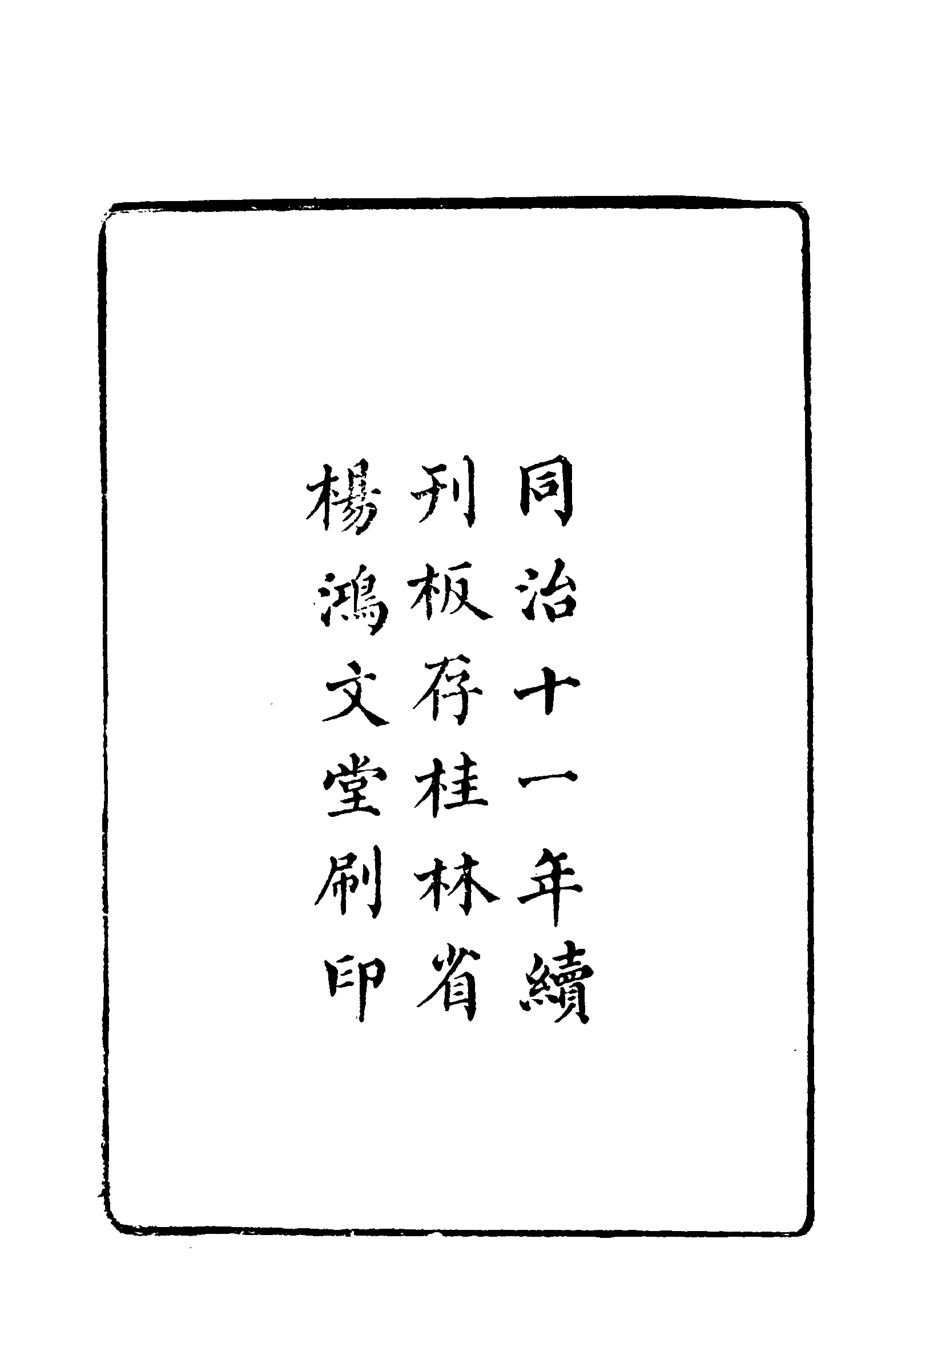 同治十一年續
刊板存桂林省
楊鴻文堂刷印